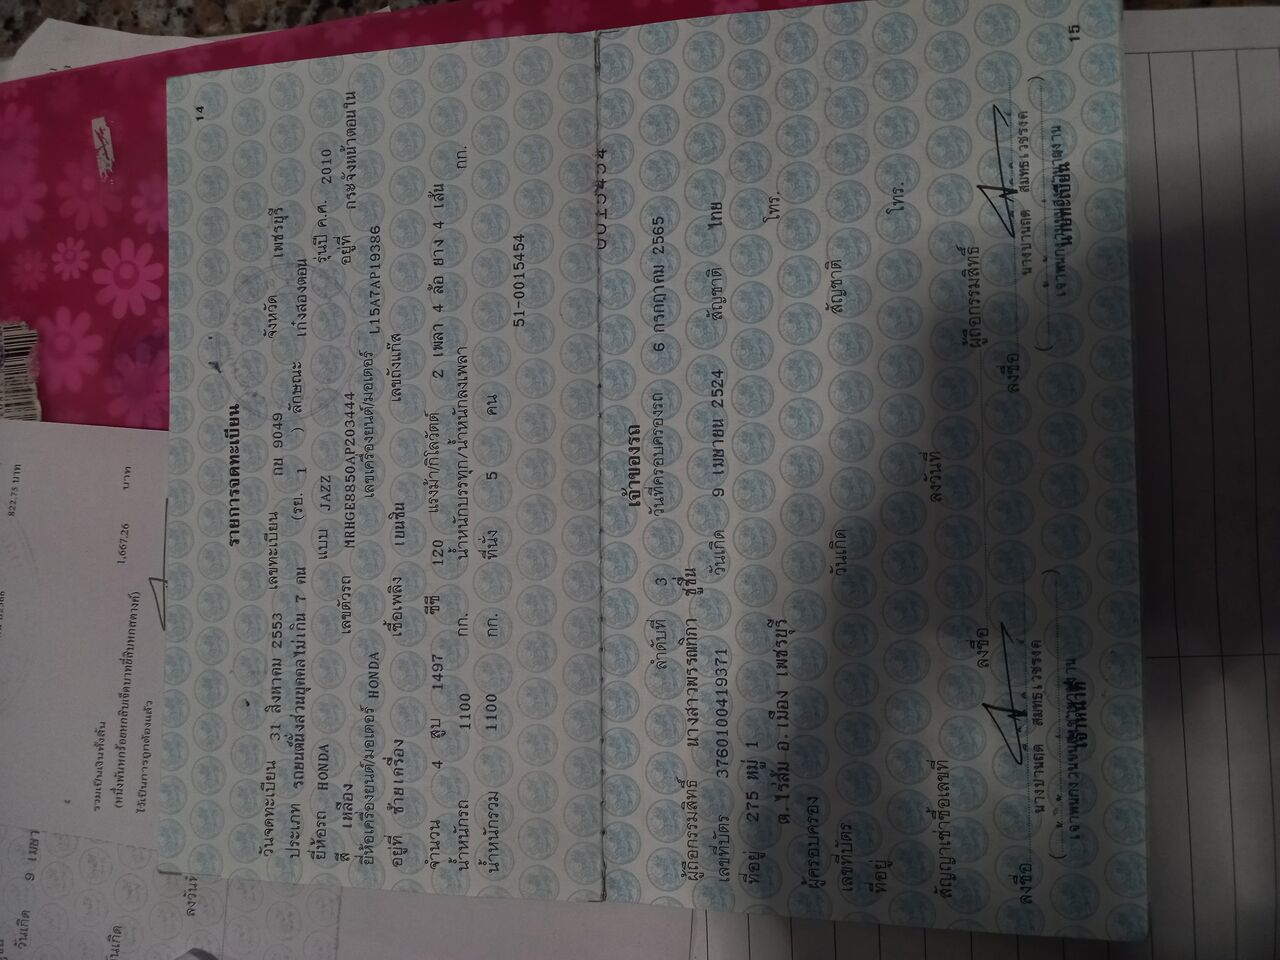 14
รายการจดทะเบียน
วันจดทะเบียน 31 สิงหาคม 2553 เลขทะเบียน กย 9049 จังหวัด เพชรบุรี
ประเภท รถยนต์นั่งส่วนบุคคลไม่เกิน 7 คน (รย. 1 ) ลักษณะ เก๋งสองตอน
ยี่ห้อรถ HONDA แบบ JAZZ รุ่นปี ค.ศ. 2010
สี เหลือง เลขตัวรถ MRHGE8850AP203444 อยู่ที่ กระจังหน้าตอนใน
ยี่ห้อเครื่องยนต์/มอเตอร์ HONDA เลขเครื่องยนต์/มอเตอร์ L15A7AP19386
อยู่ที่ ซ้ายเครื่อง เชื้อเพลิง เบนซิน เลขถังแก๊ส
จำนวน 4 สูบ 1497 ซีซี 120 แรงม้า/กิโลวัตต์ 2 เพลา 4 ล้อ ยาง 4 เส้น
น้ำหนักรถ 1100 กก. น้ำหนักบรรทุก/น้ำหนักลงเพลา กก.
น้ำหนักรวม 1100 กก. ที่นั่ง 5 คน
51-0015454
0015454
เจ้าของรถ
ลำดับที่ 3 วันที่ครอบครองรถ 6 กรกฎาคม 2565
ผู้ถือกรรมสิทธิ์ นางสาวพรรณทิภา ชูชื่น
เลขที่บัตร 3760100419371 วันเกิด 9 เมษายน 2524 สัญชาติ ไทย
ที่อยู่ 275 หมู่ 1
ต.ไร่ส้ม อ.เมือง เพชรบุรี โทร.
ผู้ครอบครอง
เลขที่บัตร วันเกิด สัญชาติ
ที่อยู่ โทร.
สัญญาเช่าซื้อเลขที่ ลงวันที่ ผู้ถือกรรมสิทธิ์
ลงชื่อ ลงชื่อ
ลงชื่อ
นางปานฤดี นางปานฤดี
เจ้าหน้าที่ นายทะเบียน
15
822.78 บาท
รวมเป็นเงินทั้งสิ้น 1,667.26 บาท
(หนึ่งพันหกร้อยหกสิบเจ็ดบาทยี่สิบหกสตางค์)
ไว้เป็นการถูกต้องแล้ว
วันเกิด 9 เมษา
วันเกิด
ลงวันที่